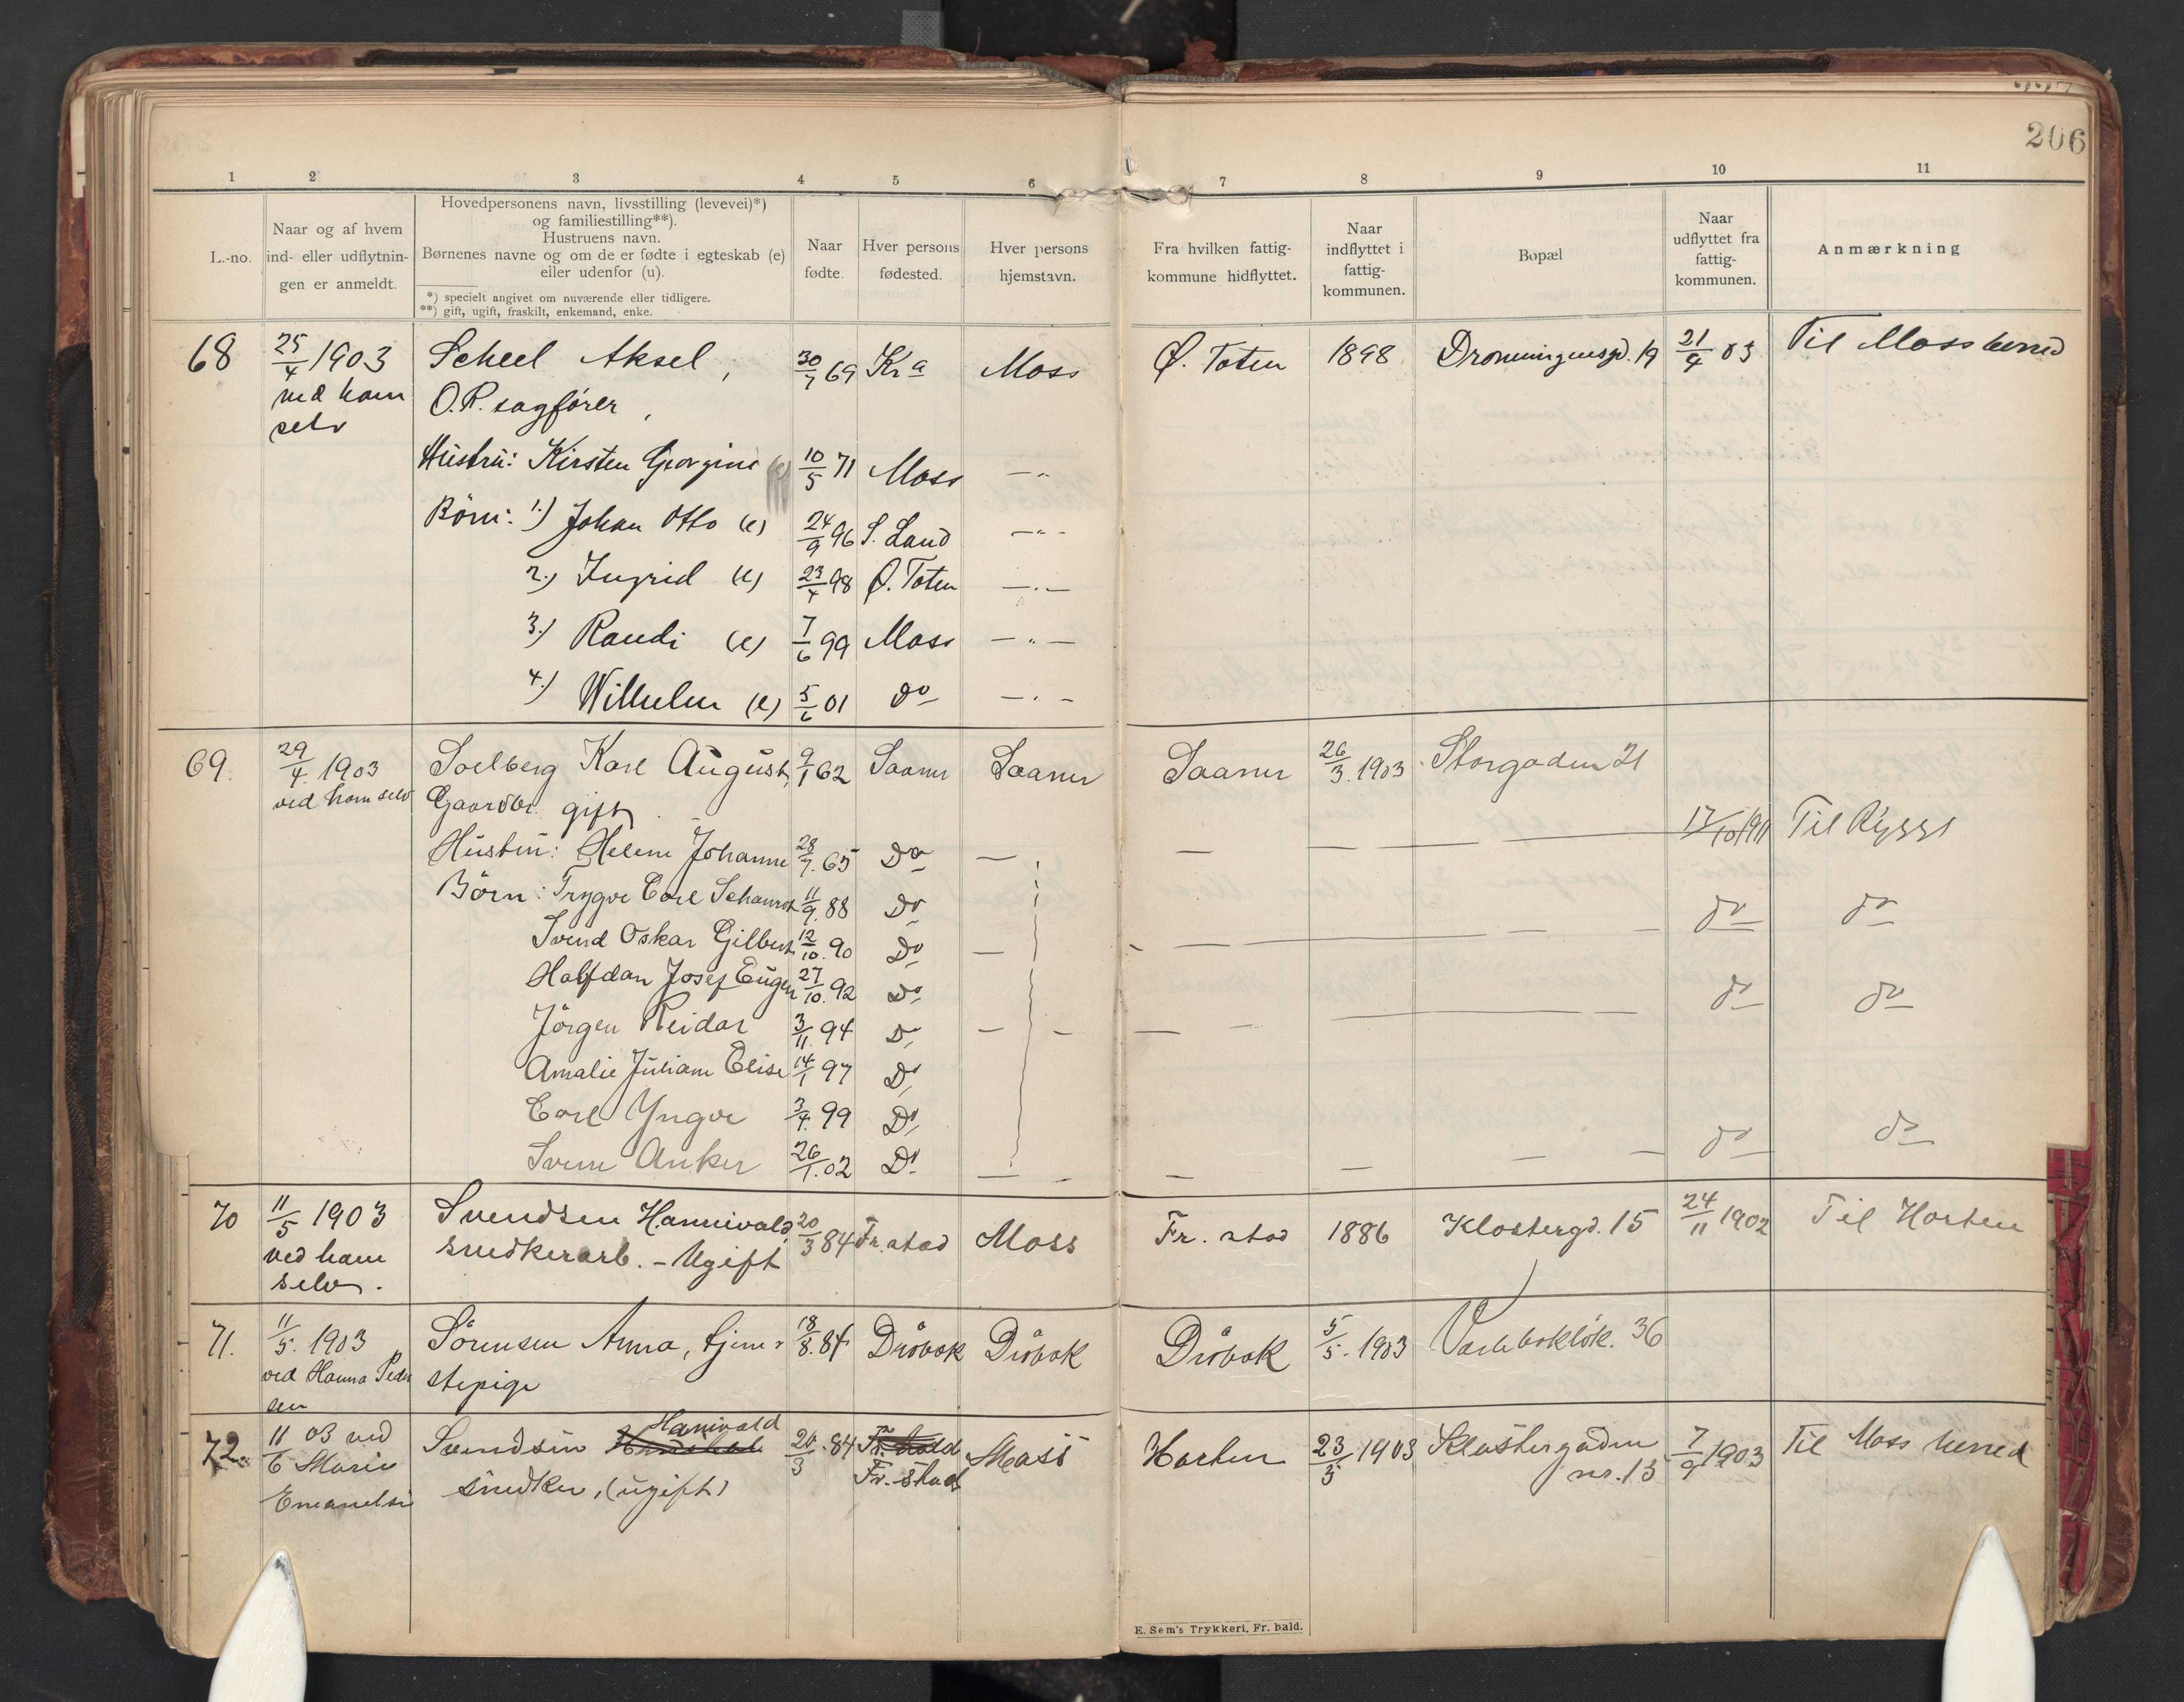 206
1 2 3 4 5 6 7 8 9 10 11
L.-no.
Naar og af hvem
ind- eller udflytnin-
gen er anmeldt.
Hovedpersonens navn, livsstilling (levevei)*)
og familiestilling**).
Hustruens navn.
Børnenes navne og om de er fødte i egteskab (e)
eller udenfor (u).
*) specielt angivet om nuværende eller tidligere.
**) gift, ugift, fraskilt, enkemand, enke.
Naar
fødte.
Hver persons
fødested.
Hver persons
hjemstavn.
Fra hvilken fattig-
kommune hidflyttet.
Naar
indflyttet i
fattig-
kommunen.
Bopæl
Naar
udflyttet fra
fattig-
kommunen.
Anmærkning
68 25/4 1903 Scheel Aksel, 30/7 69 Kra Moss Ø. Toten 1898 Dronningensgd. 19 21/9 03 Til Moss herred
ved ham O.R. sagfører,
selv
Hustru: Kirsten Georgine (e) 10/5 71 Moss —"—
Børn: 1.) Johan Otto (e) 24/9 96 S. Land —"—
2.) Ingrid (e) 23/4 98 Ø. Toten —"—
3.) Randi (e) 7/6 99 Moss —"—
4.) Wilhelm (e) 5/6 01 do —"—
69. 29/4. 1903 Soelberg Karl August, 9/1 62 Saaner Saaner Saaner 26/3. 1903 Storgaden 21
ved ham selv Gaardbr. gift. 17/10 1911 Til Rygge
Hustru: Helene Johanne 28/7. 65 Do —
Børn: Trygve Carl 11/9. 88 Do do do
Svend Oskar Gilbert 12/10. 90 Do —
Halfdan Josef Eugen 27/10. 92 Do do do
Jörgen Reidar 3/11. 94 Do —
Amalie Juliane Elise 14/1 97 Do
Carl Yngve 3/4. 99 Do
Anker 26/1. 02 Do — do do
70 11/5 1903 Svendsen Hannivald, 20/3 84 Fr.stad Moss Fr. stad 1886 Klostergd. 15 24/11 1902 Til Horten
ved ham snedkerarb. - Ugift
selv.
71. 11/5. 1903 Sörensen Anna, tjene- 18/8. 84 Dröbak Dröbak Dröbak 5/5. 1903 36
ved Hanna Peder stepige
sen
Hanivald
72. 11/6 03 ved Svendsen 20/3. 84 Fr. hald Moss Horten 23/5 1903 Klostergaden 7/9 1903 Til Moss herred
Marie snedker, (ugift) Fr. stad nr. 15
E. Sem's Trykkeri, Fr. hald.